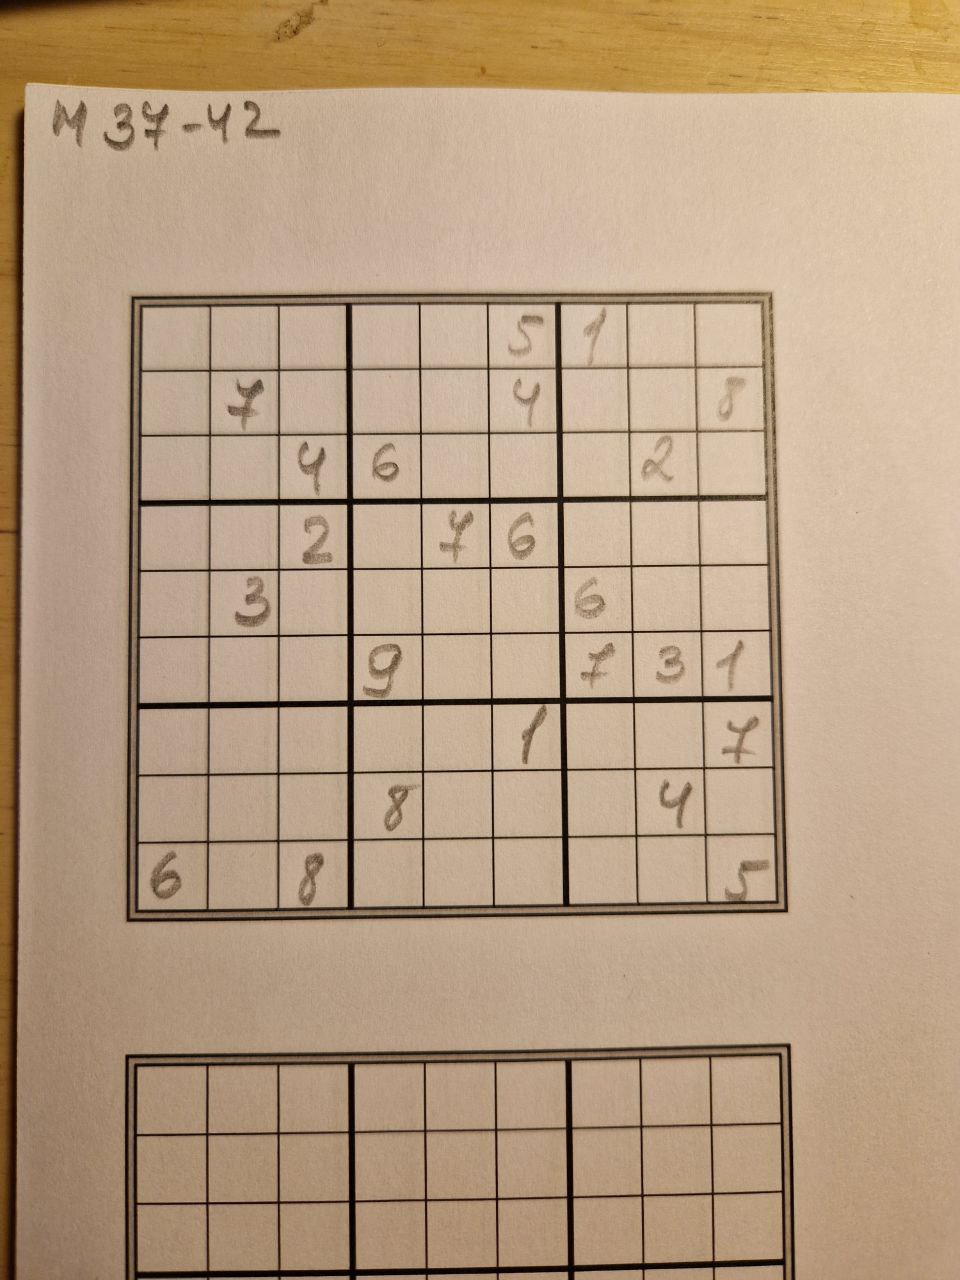 M 37-42
5 1
7 4 8
4 6 2
2 7 6
3 6
9 7 3 1
1 7
8 4
6 8 5